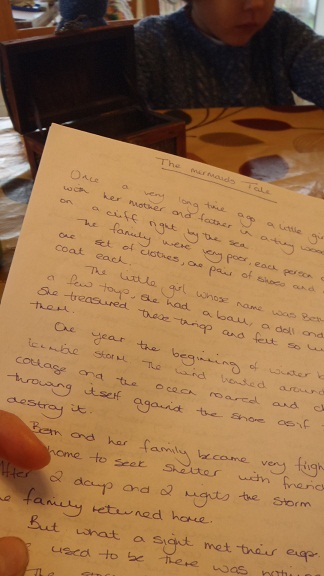 The Mermaids Tale
Once a very long time ago a little
with her mother and father in a tiny
on a cliff right by the sea.
The family were very poor, each person
one set of clothes, one pair of shoes and
coat each.
The little girl whose name was Beth
a few toys, she had a ball, a doll and
She treasured these things and felt so
them.
One year the beginning of winter
terrible storm. The wind howled around
cottage and the ocean roared and
throwing itself against the shore as if
destroy it.
Beth and her family became very
home to seek shelter with
After 2 days and 2 nights the storm
family returned home.
But what a sight met their eyes.
used to be there was
The